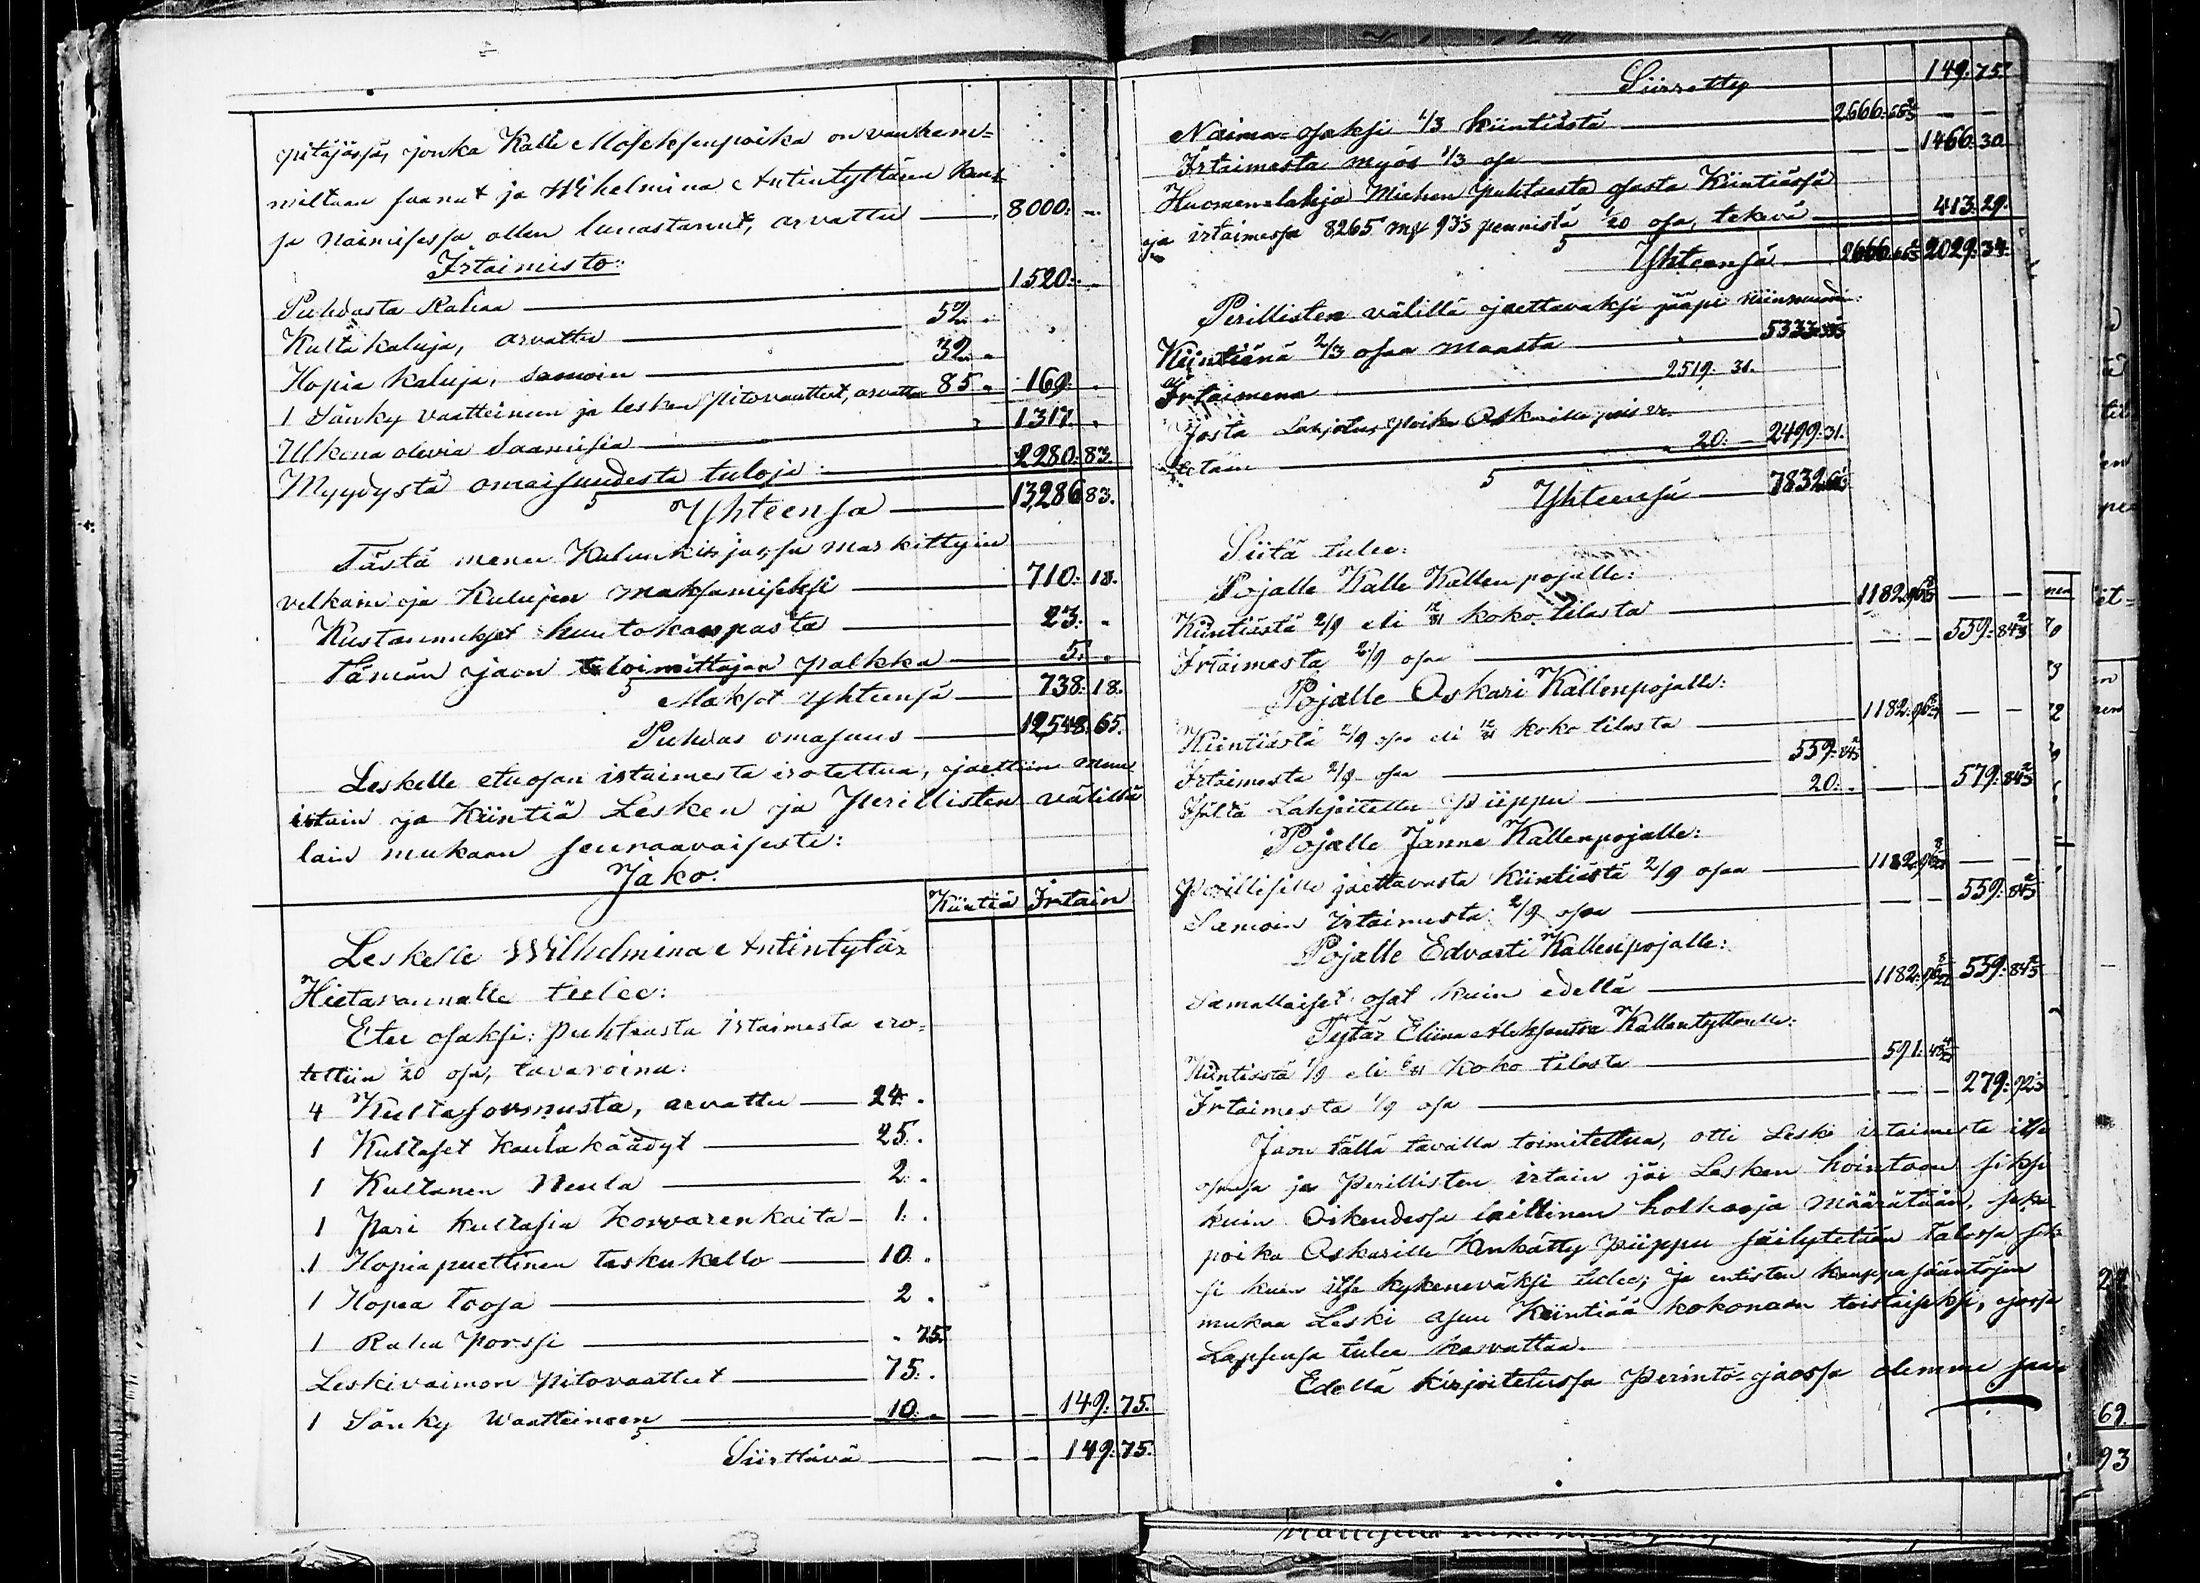 pitäjässä, jonka Kalle Moseksenpoika on vanhem-
miltaan saanut ja Wilhelmina Antintyttären kans-
sa naimisessa ollen lunastanut, arvattu 8000: -
Irtaimisto:
Puhdasta Rahaa 1520: -
Kulta kaluja, arvattu 52. -
Hopia kaluja, samoin 32. -
1 Sänky vaatteineen ja lesken pitovaatteet, arvattu 85. 169: -
Ulkona olevia Saamisia 1317. -
Myydystä omaisuudesta tuloja 2280: 83.
5 Yhteensä 13,286 83.
Tästä menee Kalunkirjassa merkittyin
velkain ja Kulujen maksamiseksi 710: 18.
Kustannukset huutokaupasta 23: -
Tämän jaon toimittajan palkka 5: -
5 Maksot Yhteensä 738: 18.
Puhdas omasuus 12,548: 65.
Leskelle etuosan irtaimesta erotettua, jaettiin muu
irtain ja Kiintiä Lesken ja Perillisten välillä
lain mukaan seuraavaisesti:
Jako:
Kiintiä Irtain
Leskelle Wilhelmina Antintytär
Hietarannalle tulee:
Etu osaksi: puhtaasta irtaimesta ero-
tettiin 1/20 osa, tavaroina:
4 Kultasormusta, arvattu 24: -
1 Kultaset Kaulakäädyt 25. -
1 Kultanen Neula 2: -
1 Pari kultasia Korvarenkaita 1: -
1 Hopiapuettinen taskukello 10: -
1 Hopea toosa 2 -
1 Raha porssi - 75.
Leskivaimon Pitovaatteet 75. -
1 Sänky Waatteineen 10: - — — 149: 75.
Siirttävä — — 149: 75.
Siirretty 149: 75.
Naima-osaksi 1/3 kiintiästä 2666: 66 2/3 — —
Irtaimesta myös 1/3 osa — 1466: 30
Huomenlahja Miehen puhtaasta osasta Kiintiässä
ja irtaimessa 8265 mk 93 1/3 pennistä 1/20 osa, tekevä 413: 29.
5 Yhteensä 2666: 66 2/3 2029: 34.
Perillisten välillä jaettavaksi jääpi niinmuodin:
Kiintiänä 2/3 osaa maasta 5333: 33 1/3
Irtaimena 2519: 31.
Josta Lahjotus poika Oskarille pois ve-
tetään 20: — 2499: 31.
5 Yhteensä 7832: 64 1/3
Siitä tulee:
Pojalle Kalle Kallen pojalle:
Kiintiästä 2/9 eli 12/81 koko tilasta 1182: 96 — —
Irtaimesta 2/9 osa — — 559: 84 2/3
Pojalle Oskari Kallenpojalle:
Kiintiästä 2/9 osa eli 12/81 koko tilasta 1182: 96 — —
Irtaimesta 2/9 osa 559: 84 2/3
Isältä Lahjoitettu Piippu 20: - — — 579: 84 2/3
Pojalle Janne Kallenpojalle:
Perillisille jaettavasta Kiintiästä 2/9 osaa 1182: 96 — —
Samoin irtaimesta 2/9 osa — — 559: 84 2/3
Pojalle Edvarti Kallenpojalle:
Samallaiset osat kuin edellä 1182: 96 559: 84 2/3
Tytär Eliina Aleksantra Kallentyttarelle:
Kiintiästä 1/9 eli 6/81 Koko tilasta 591: 48
Irtaimesta 1/9 osa — — 279: 92 1/3
Jaon tällä tavalla toimitettua, otti Leski irtaimesta itse
osansa ja Perillisten irtain jäi Lesken hointoon siksi
kuin Oikeudessa laillinen holhooja määrätään, sekä
poika Oskarille Kenkätty piippu säilytetään talossa sik-
si kuin itse kykeneväksi tulee; ja entisten kauppasääntöjen
mukaa Leski asuu Kiintiää kokonaan toistaiseksi, jossa
Lapsensa tulee kasvattaa.
Edellä kirjoitetussa Perintö-jaossa olemme saa-
69.
93